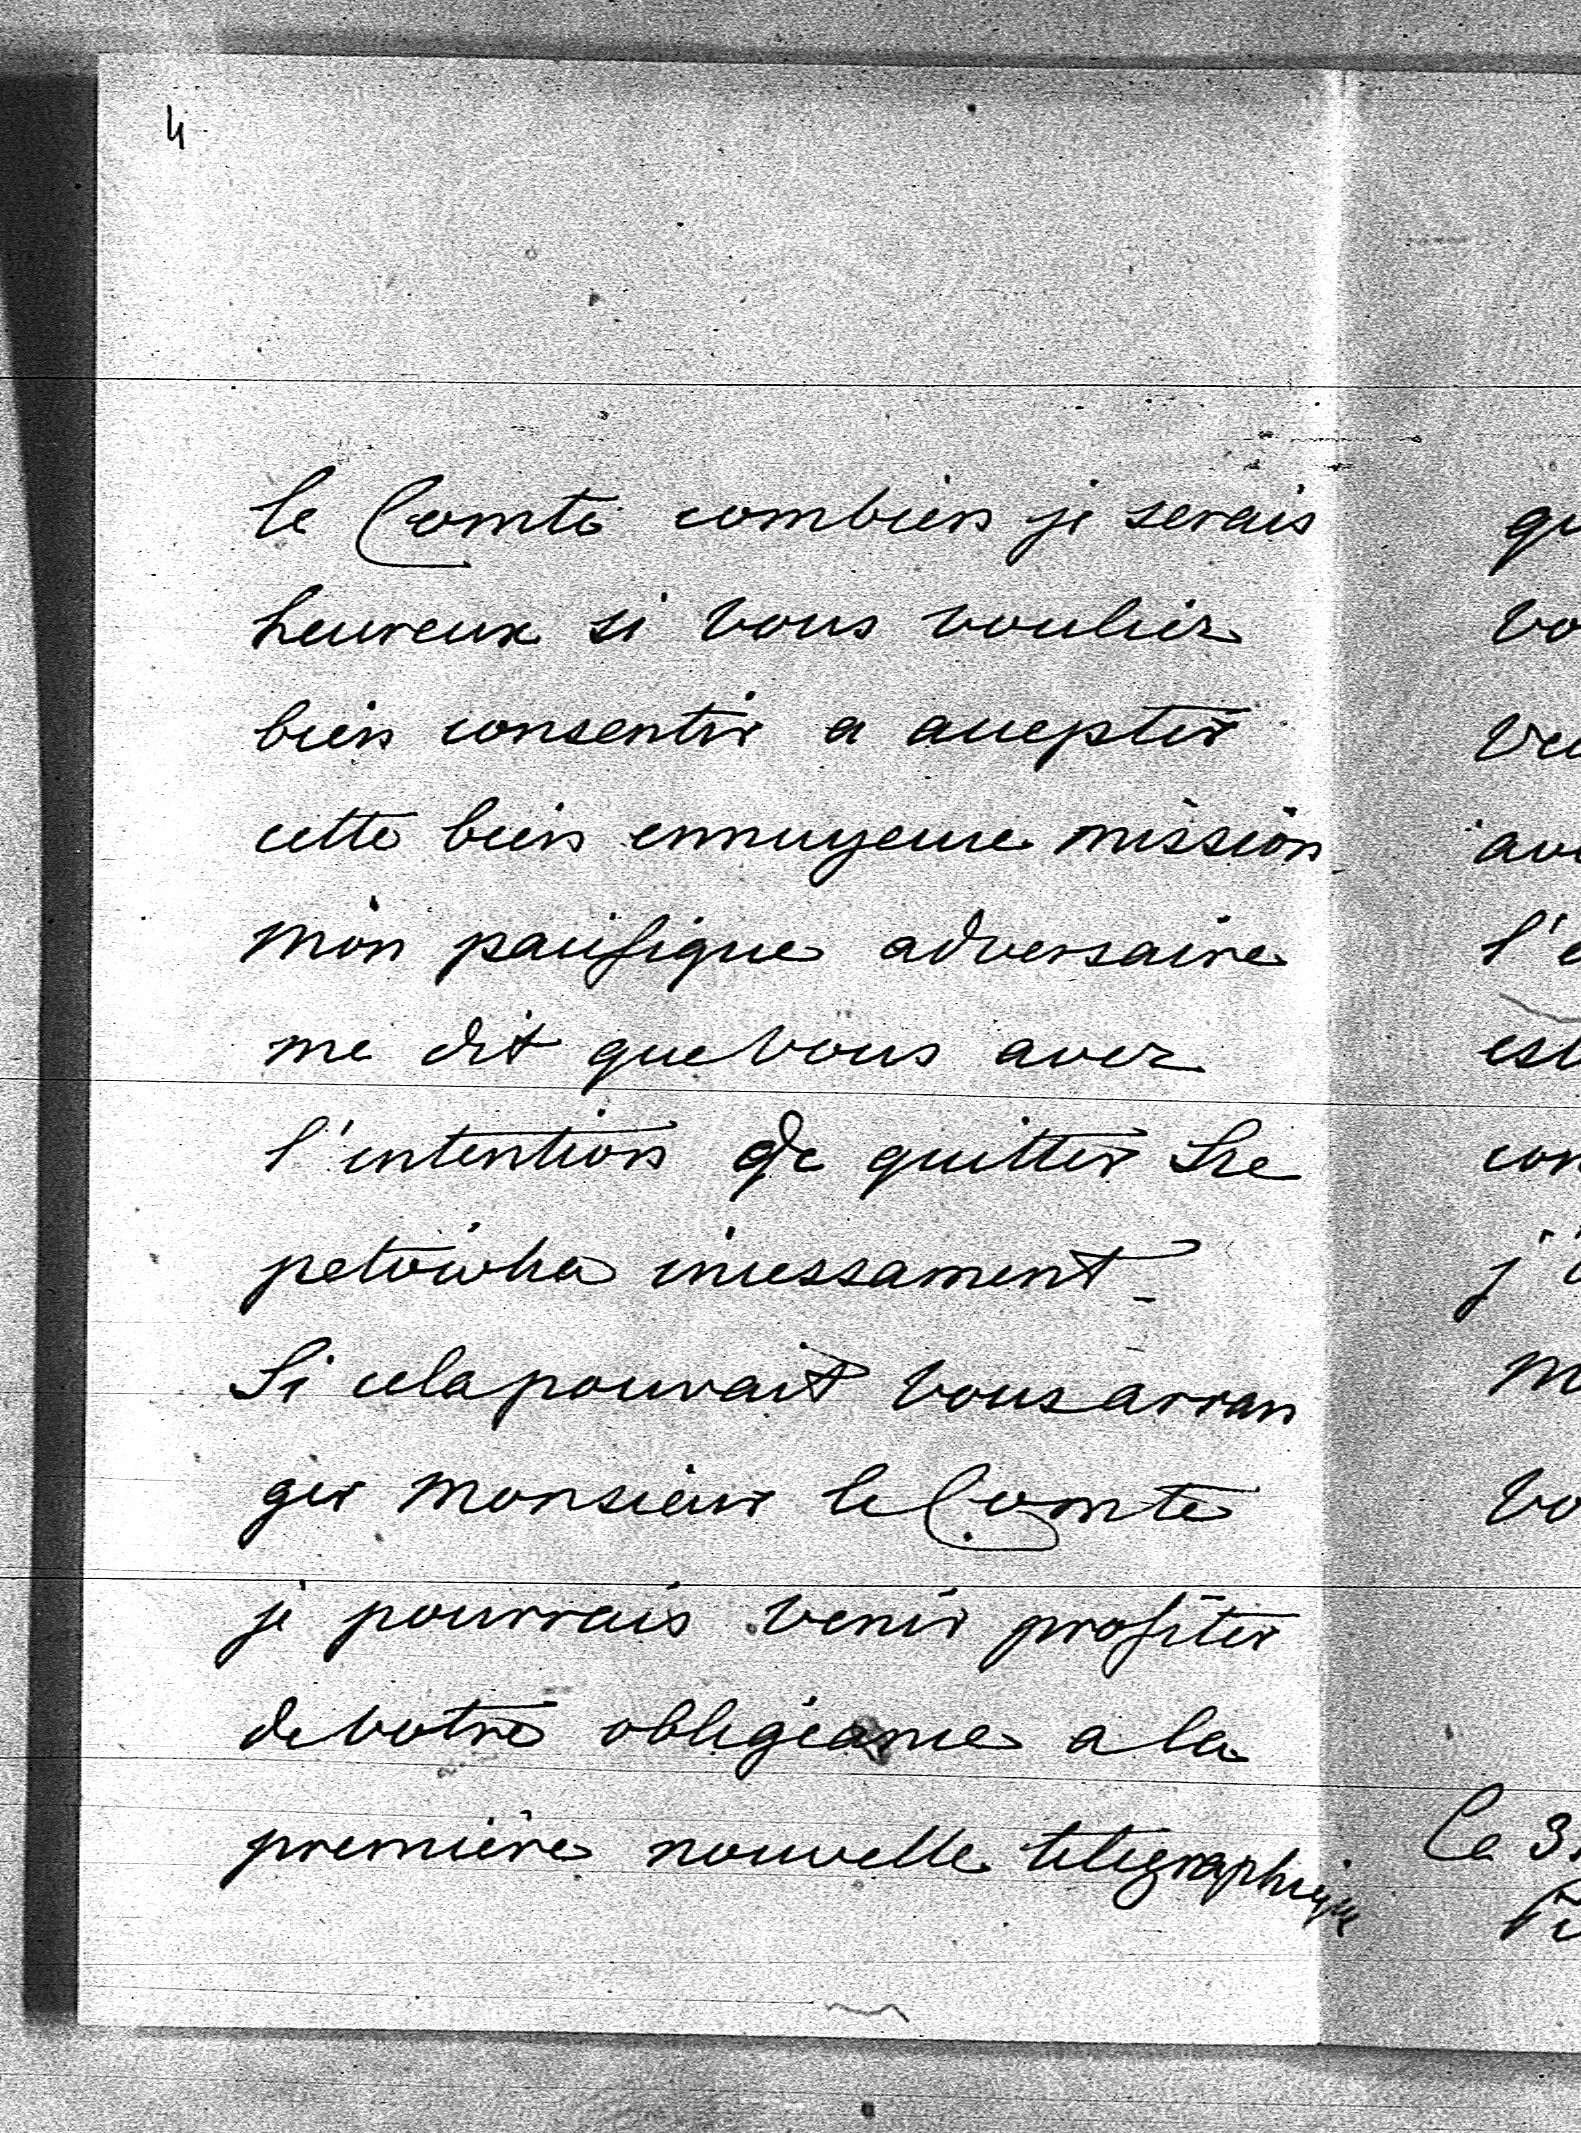 4
le Comte combien je serais
heureux si vous vouliez
bien consentir a accepter
cette bien ennuyeuse mission
mon pacifique adversaire
me dit que vous avez
l'intention de quitter Sre
petowka incessament_
Si cela pouvait vous arran
ger Monsieur le Comte
je pourrais venir profiter
de votre obligeance a la
première nouvelle télégraphique
qu
vo
veu
ave
l'e
est
con
j'
M
vo
le 3